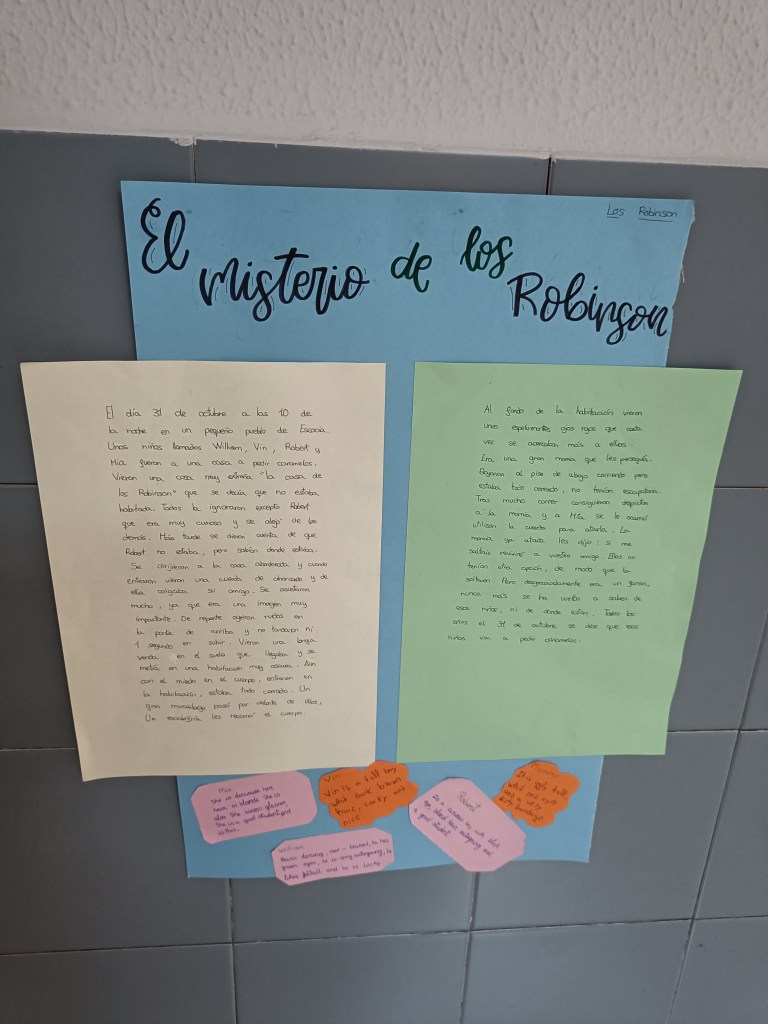 Los Robinson
El misterio de los Robinson
El día 31 de octubre a las 10 de
la noche en un pequeño pueblo de Escocia.
Unos niños llamados William, Vin, Robert y
Mia fueron a una casa a pedir caramelos.
Vieron una casa muy extraña "la casa de
los Robinson" que se decía que no estaba
habitada. Todos la ignoraron excepto Robert
que era muy curioso y se alejó de los
demás. Más tarde se dieron cuenta de que
Robert no estaba, pero sabían donde estaba.
Se dirijieron a la casa abandonada y cuando
entraron vieron una cuerda de ahorcado y de
ella colgaba su amigo. Se asustaron
mucho, ya que era una imagen muy
impactante. De repente oyeron ruidos en
la parte de arriba y no tardaron ni
1 segundo en subir. Vieron una larga
venda en el suelo que llegaba y se
metía en una habitación muy oscura. Aun
con el miedo en el cuerpo, entraron en
la habitación, estaba todo cerrado. Un
gran murciélago pasó por delante de ellos,
Un escalofrío les recorrió el cuerpo.
Al fondo de la habitación vieron
unos espeluznantes ojos rojos que cada
vez se acercaban más a ellos.
Era una gran momia que les perseguía.
Bajaron al piso de abajo corriendo pero
estaba todo cerrado, no tenían escapatoria.
Tras mucho correr consiguieron despistar
a la momia y a Mia se le ocurrió
utilizar la cuerda para atarla. La
momia ya atada les dijo: si me
soltáis reviviré a vuestro amigo. Ellos no
tenían otra opción, de modo que la
soltaron. Pero desgraciadamente era un
nunca más se ha vuelto a saber de
esos niños, ni de donde están. Todos los
años el 31 de octubre se dice que esos
niños van a pedir caramelos.
Mia
She is
hair is blonde She is
also She wears glasses,
She is a good student and
Vin
Vin is a tall boy
what dark brown
hair, curly and
nice.
Mummy
It is very tall
what red eyes
and a very
dirty bandage
William
daring, red - haired, he has
green eyes, he is very outgoing, he
likes football and he is lucky
Robert
Is a curious boy, with blue
eye, black hair outgoing and
a good student